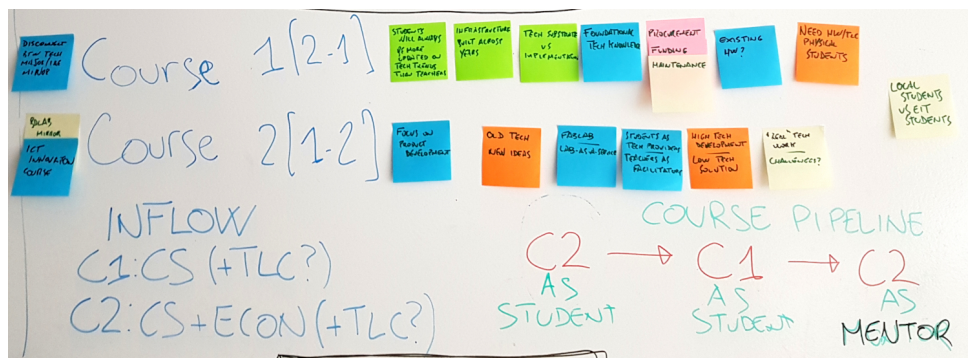 DISCONNECT
BTW TECH
Course 1[2-1]
STUDENTS
WILL ALWAYS
BE MORE
UPDATED ON
TECH TRENDS
THAN TEACHERS
INFRASTRUCTURE
BUILT ACROSS
YEARS
TECH SUBSTRATE
VS
IMPLEMENTATION
FOUNDATIONAL
TECH KNOWLEDGE
PROCUREMENT
FUNDING
MAINTENANCE
EXISTING
HW?
NEED HW/TLC
PHYSICAL
STUDENTS
LOCAL
STUDENTS
VS EIT
STUDENTS
MIRROR
ICT
INNOVATION
COURSE
Course 2[1-2]
FOCUS ON
PRODUCT
DEVELOPMENT
OLD TECH
NEW IDEAS
FABLAB
LAB-AS-A-SERVICE
STUDENTS AS
TECH PROVIDERS
TEACHERS AS
FACILITATORS
HIGH TECH
DEVELOPMENT
LOW TECH
SOLUTION
"REAL" TECH
WORK
CHALLENGES?
INFLOW
C1:CS (+TLC?)
C2:CS+ECON (+TLC?)
COURSE PIPELINE
C2 → C1 → C2
AS AS AS
STUDENT STUDENT MENTOR